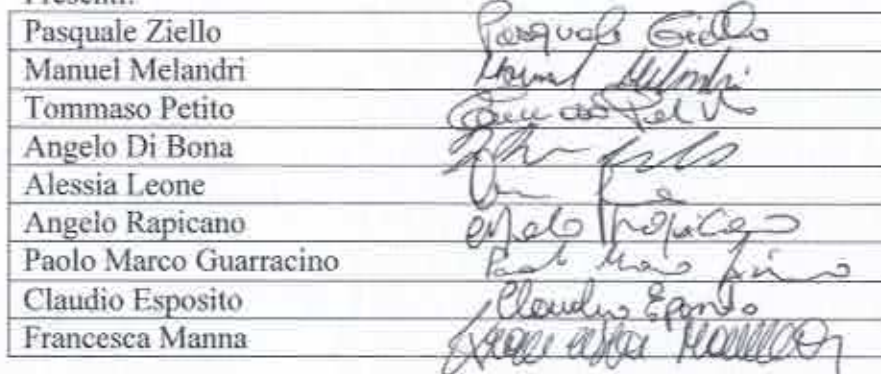 Presenti:
Pasquale Ziello Pasquale Ziello
Manuel Melandri Manuel Melandri
Tommaso Petito
Angelo Di Bona
Alessia Leone
Angelo Rapicano Angelo Rapicano
Paolo Marco Guarracino Paolo Marco
Claudio Esposito Claudio Esposito
Francesca Manna Francesca Manna